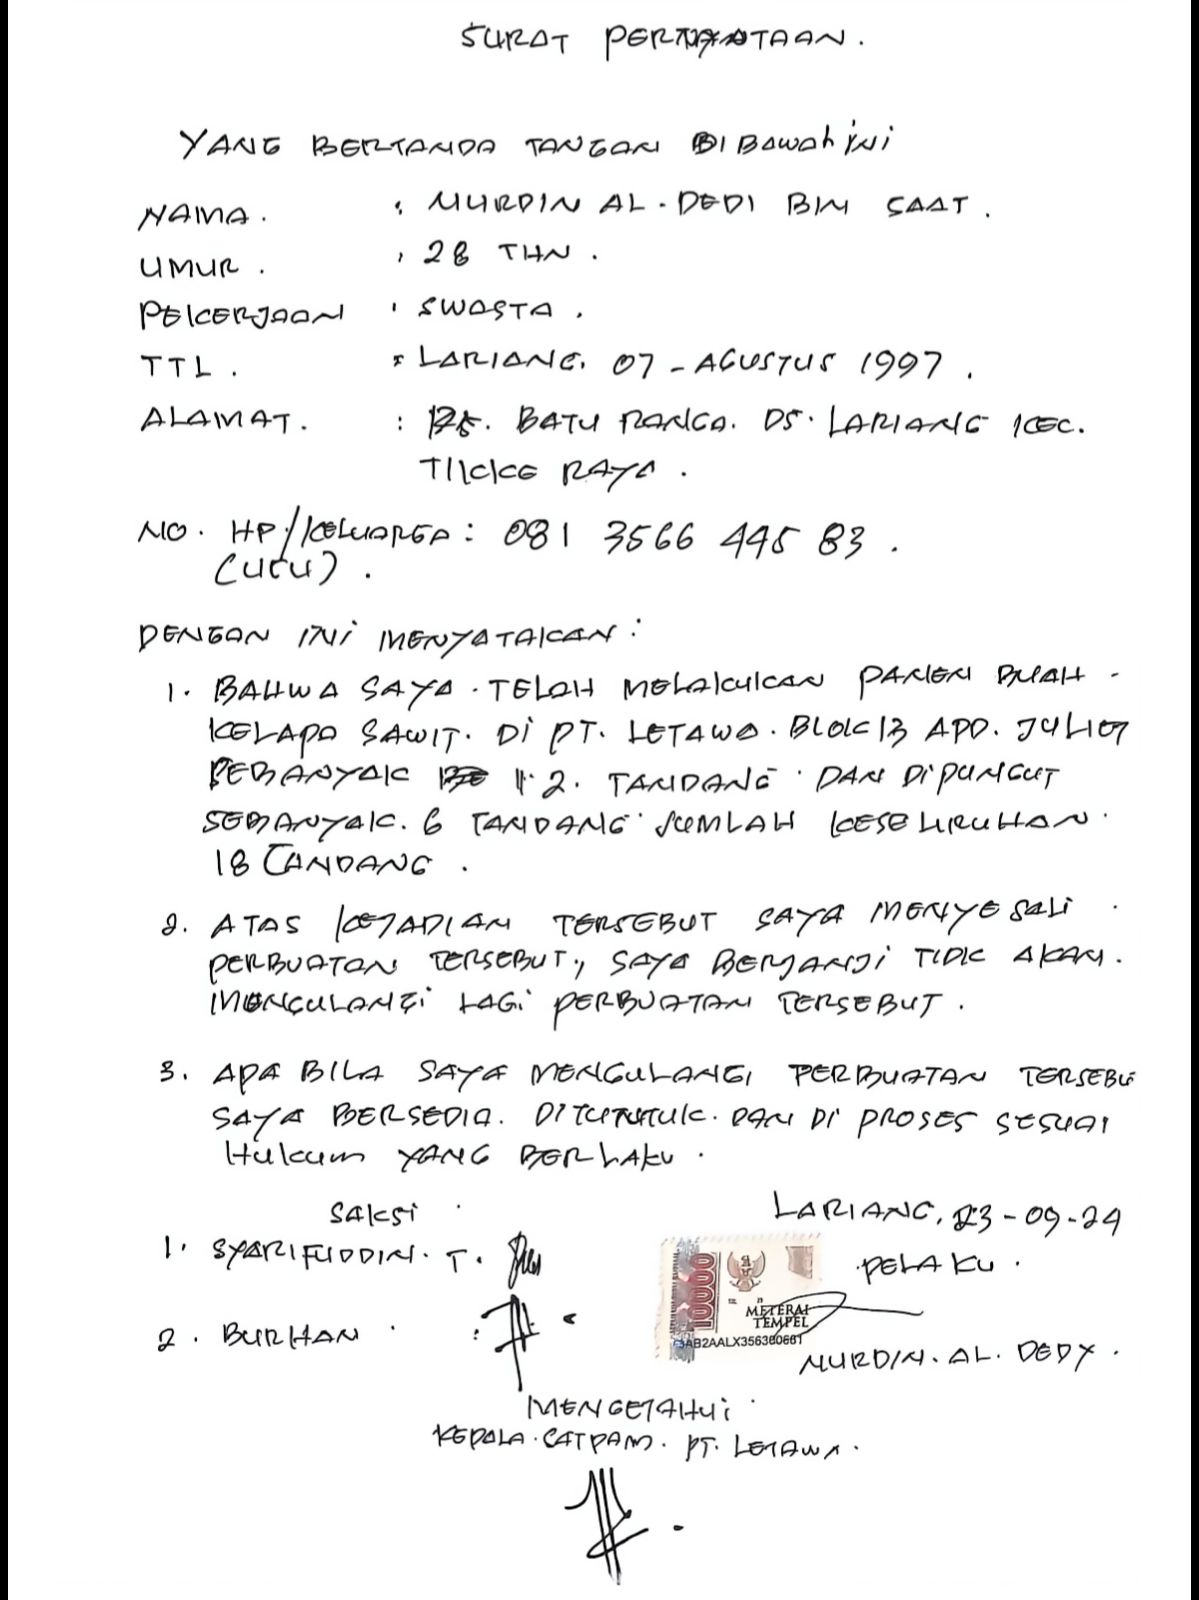 SURAT PERNYATAAN.
YANG BERTANDA TANGAN DIBAWAH INI
NAMA. : NURDIN AL. DEDI BIN SAAT.
UMUR. : 28 THN.
PEKERJAAN : SWASTA.
TTL. : LARIANG, 07 - AGUSTUS 1997.
ALAMAT. : BATU RANGA. DS. LARIANG KEC.
TIKKE RAYA.
NO. HP/KELUARGA : 081 3566 445 83.
(UCU).
DENGAN INI MENYATAKAN :
1. BAHWA SAYA. TELAH MELAKUKAN PANEN BUAH -
KELAPA SAWIT. DI PT. LETAWA. BLOK 13 APD. JULIET
SEBANYAK 12. TANDANG. DAN DIPUNGUT
SEBANYAK. 6 TANDANG. JUMLAH KESELURUHAN.
18 TANDANG.
2. ATAS KEJADIAN TERSEBUT SAYA MENYESALI.
PERBUATAN TERSEBUT, SAYA BERJANJI TIDK AKAN.
MENGULANGI LAGI PERBUATAN TERSEBUT.
3. APA BILA SAYA MENGULANGI PERBUATAN TERSEBU
SAYA BERSEDIA. DITUNTUK. DAN DI PROSES SESUAI
HUKUM YANG BERLAKU.
SAKSI
LARIANG, 23-09-24
1. SYARIFUDDIN. T.
PELAKU.
10000
METERAI
TEMPEL
3AB2AALX356380661
2. BURHAN :
NURDIN. AL. DEDY.
MENGETAHUI
KEPALA. CATPAM. PT. LETAWA.